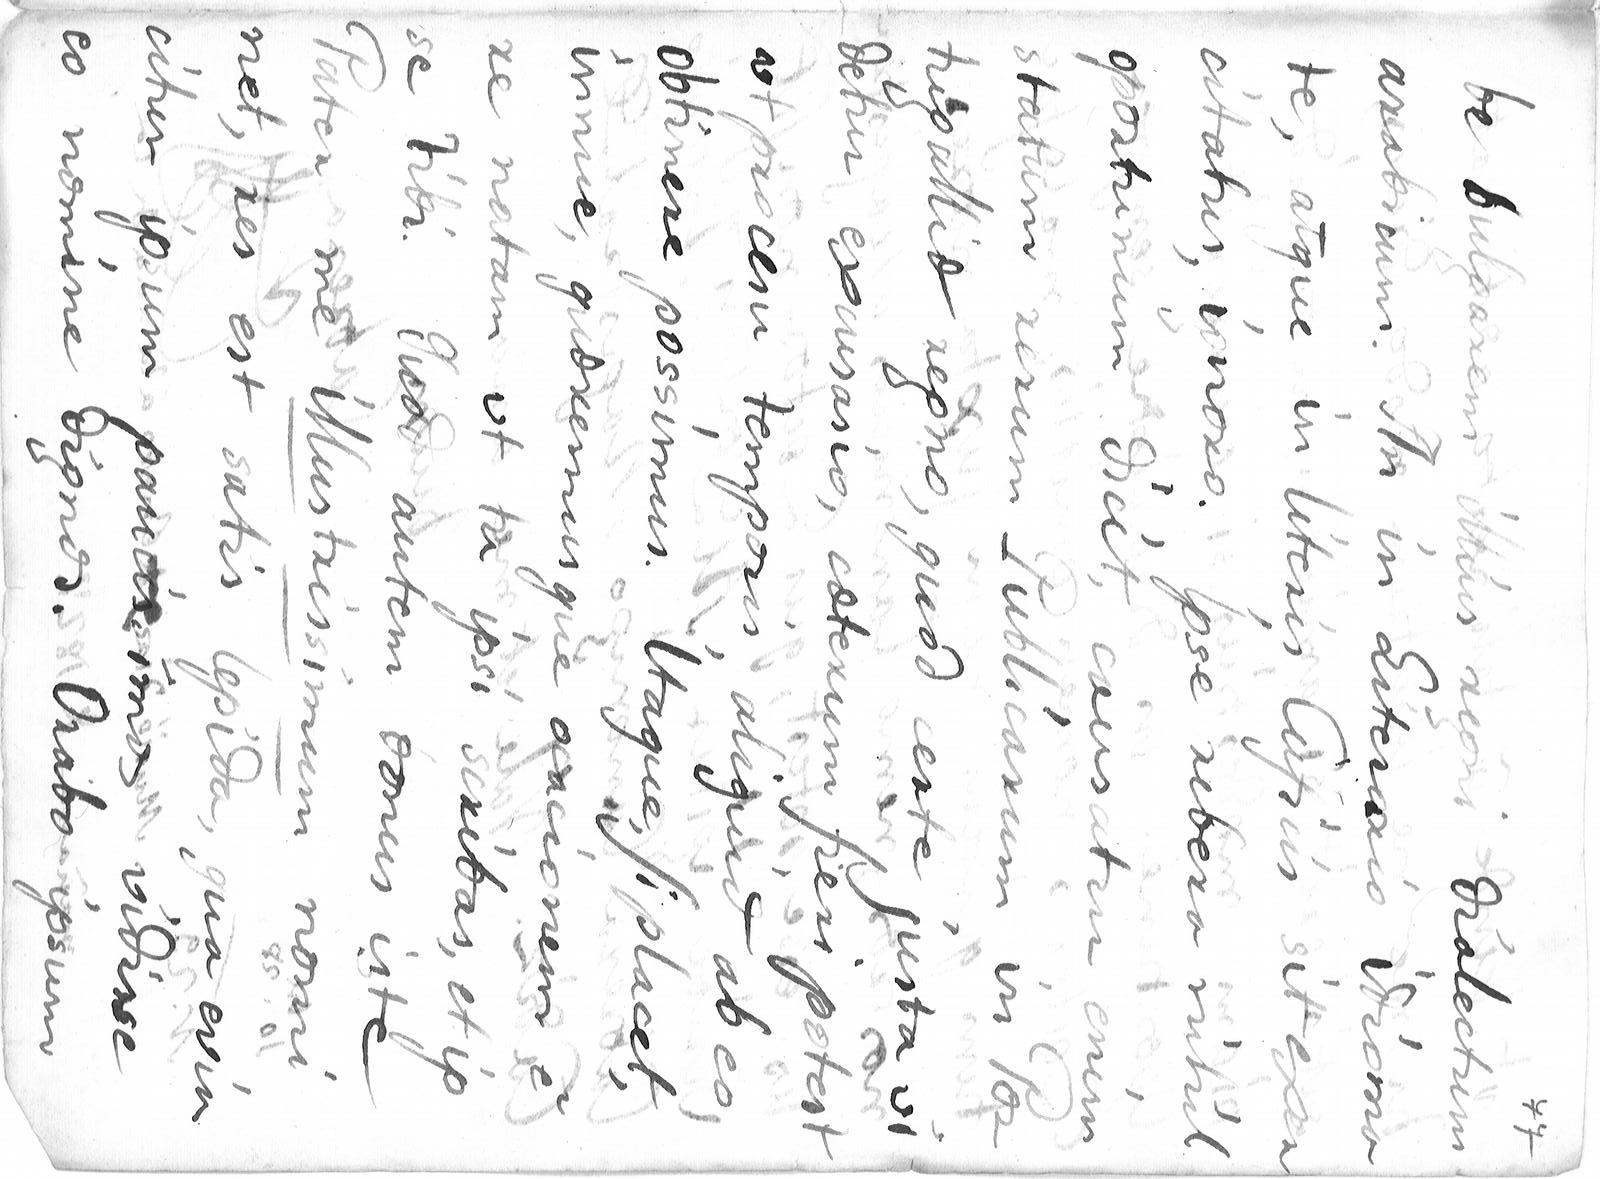 77
be bulgarem illius regni Dialectum
arabicam. An in Euternio idiomo
te, atque in literis Cufiis sit exar
citatus, ignoro. Ipse rebera nihil
oportunum dicit, causatur enim
statum rerum Publicarum in Po
tugallia regno, quod certe justa vi
detur excusatio, coeterum fieri potest
vt procem temporis aliquid ab eo
obtinere possimus. Itaque, si placet,
innue, quoremusque occionem e
re natam vt tu ipsi scribas, et ip
se tibi. Quod autem bonus iste
Pater me Illustrissimum nomi
net, res est satis lepida, qua ex in
citur ipsum paucissimos vidisse
eo nomine dignos. Orabo ipsum